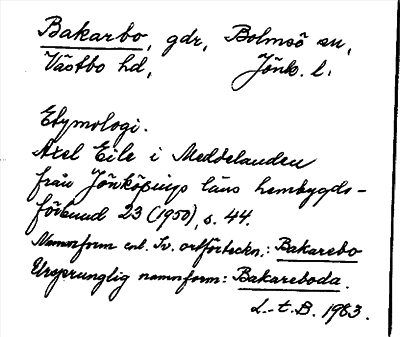 Bakarbo, gdr, Bolmsö sn,
Västbo hd, Jönk. l.
Etymologi.
Axel Eile i Meddelanden
från Jönköpings läns hembygds-
förbund 23 (1950), s. 44.
Namnform enl. Sv. ortförteckn.: Bakarebo
Ursprunglig namnform: Bakareboda.
L-t. B. 1983.